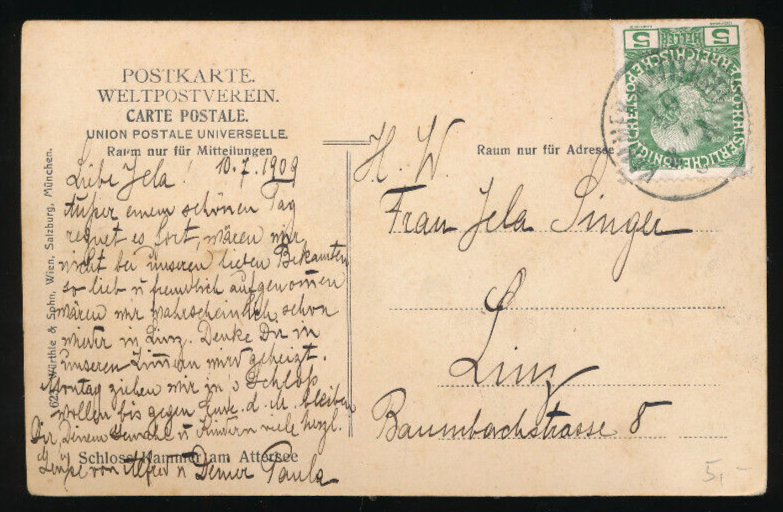 POSTKARTE.
WELTPOSTVEREIN.
CARTE POSTALE.
UNION POSTALE UNIVERSELLE.
Raum nur für Mitteilungen
10.7.1909
Liebe Jela!
Außer einem schönen Tag
regnet es fort, wären wir
nicht bei unseren lieben Bekannten
so lieb u freundlich aufgenom̄en
wären wir wahrscheinlich schon
wieder in Linz. Denke Dir in
unseren Zim̄ern wird geheizt.
Montag ziehen wir in's Schloß
wollen bis gegen Ende d. M. bleiben
Dir, Deinem Gemahl u Kindern viele herzl.
Grüße von Alfred u Deiner Paula
Schloss Kammer am Attersee
Würthle & Sohn, Wien, Salzburg, München.
Raum nur für Adresse
H. W.
Frau Jela Singer
Linz
Baumbachstrasse 8
5 HELLER 5
KAMMER
5,-